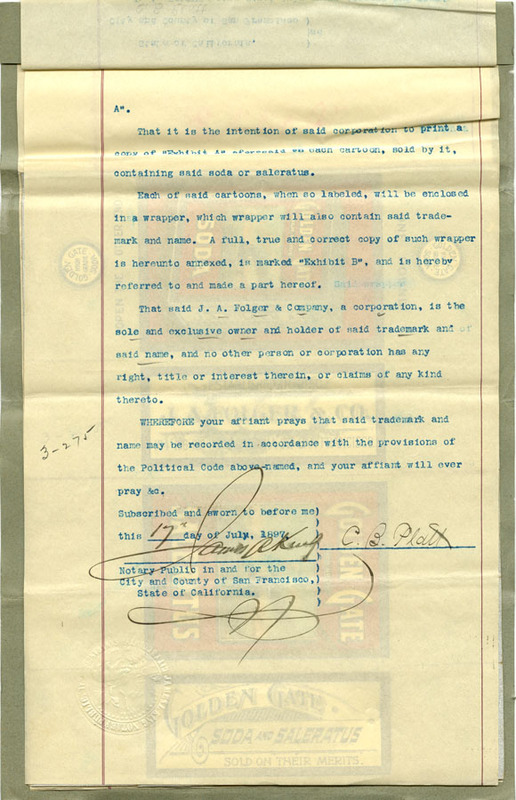 A".
That it is the intention of said corporation to print a
copy of "Exhibit A" aforesaid on each cartoon, sold by it,
containing said soda or saleratus.
Each of said cartoons, when so labeled, will be enclosed
in a wrapper, which wrapper will also contain said trade-
mark and name. A full, true and correct copy of such wrapper
is hereunto annexed, is marked "Exhibit B", and is hereby
referred to and made a part hereof.
That said J. A. Folger & Company, a corporation, is the
sole and exclusive owner and holder of said trademark and of
said name, and no other person or corporation has any
right, title or interest therein, or claims of any kind
thereto.
WHEREFORE your affiant prays that said trademark and
name may be recorded in accordance with the provisions of
3-275
the Political Code above-named, and your affiant will ever
pray &c.
Subscribed and sworn to before me)
this 17th day of July, 1897.
C. B. Platt
Notary Public in and for the
City and County of San Francisco,)
State of California.
GOLDEN GATE
SODA AND SALERATUS
SOLD ON THEIR MERITS.